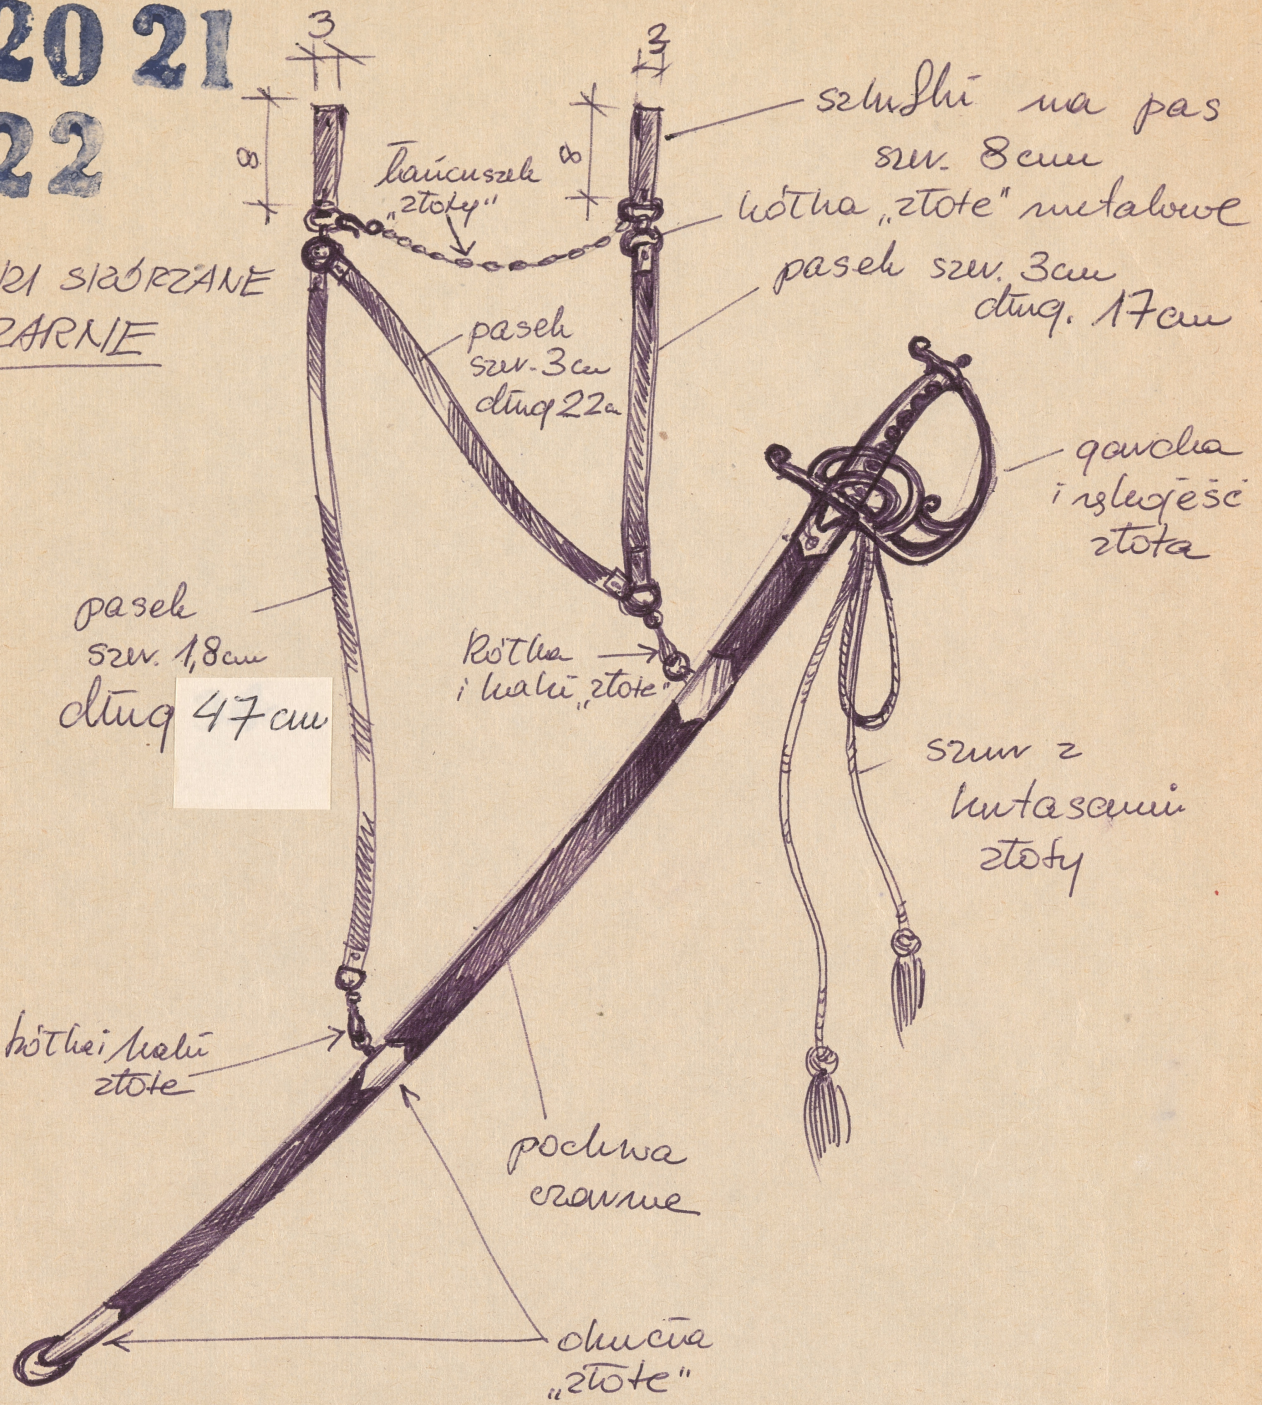 20 21
22
3
3
8
8
szlufki na pas
szer. 8cm
łańcuszek
„złoty"
kółka „złote" metalowe
pasek szer. 3cm
dług. 17cm
SKÓRZANE
pasek
szer. 3cm
dług 22
garda
i rękojeść
złota
pasek
szer. 1,8cm
dług 47cm
kółka
i haki „złote"
sznur z
kutasami
złoty
kółka i haki
złote
pochwa
czarne
okucia
„złote"